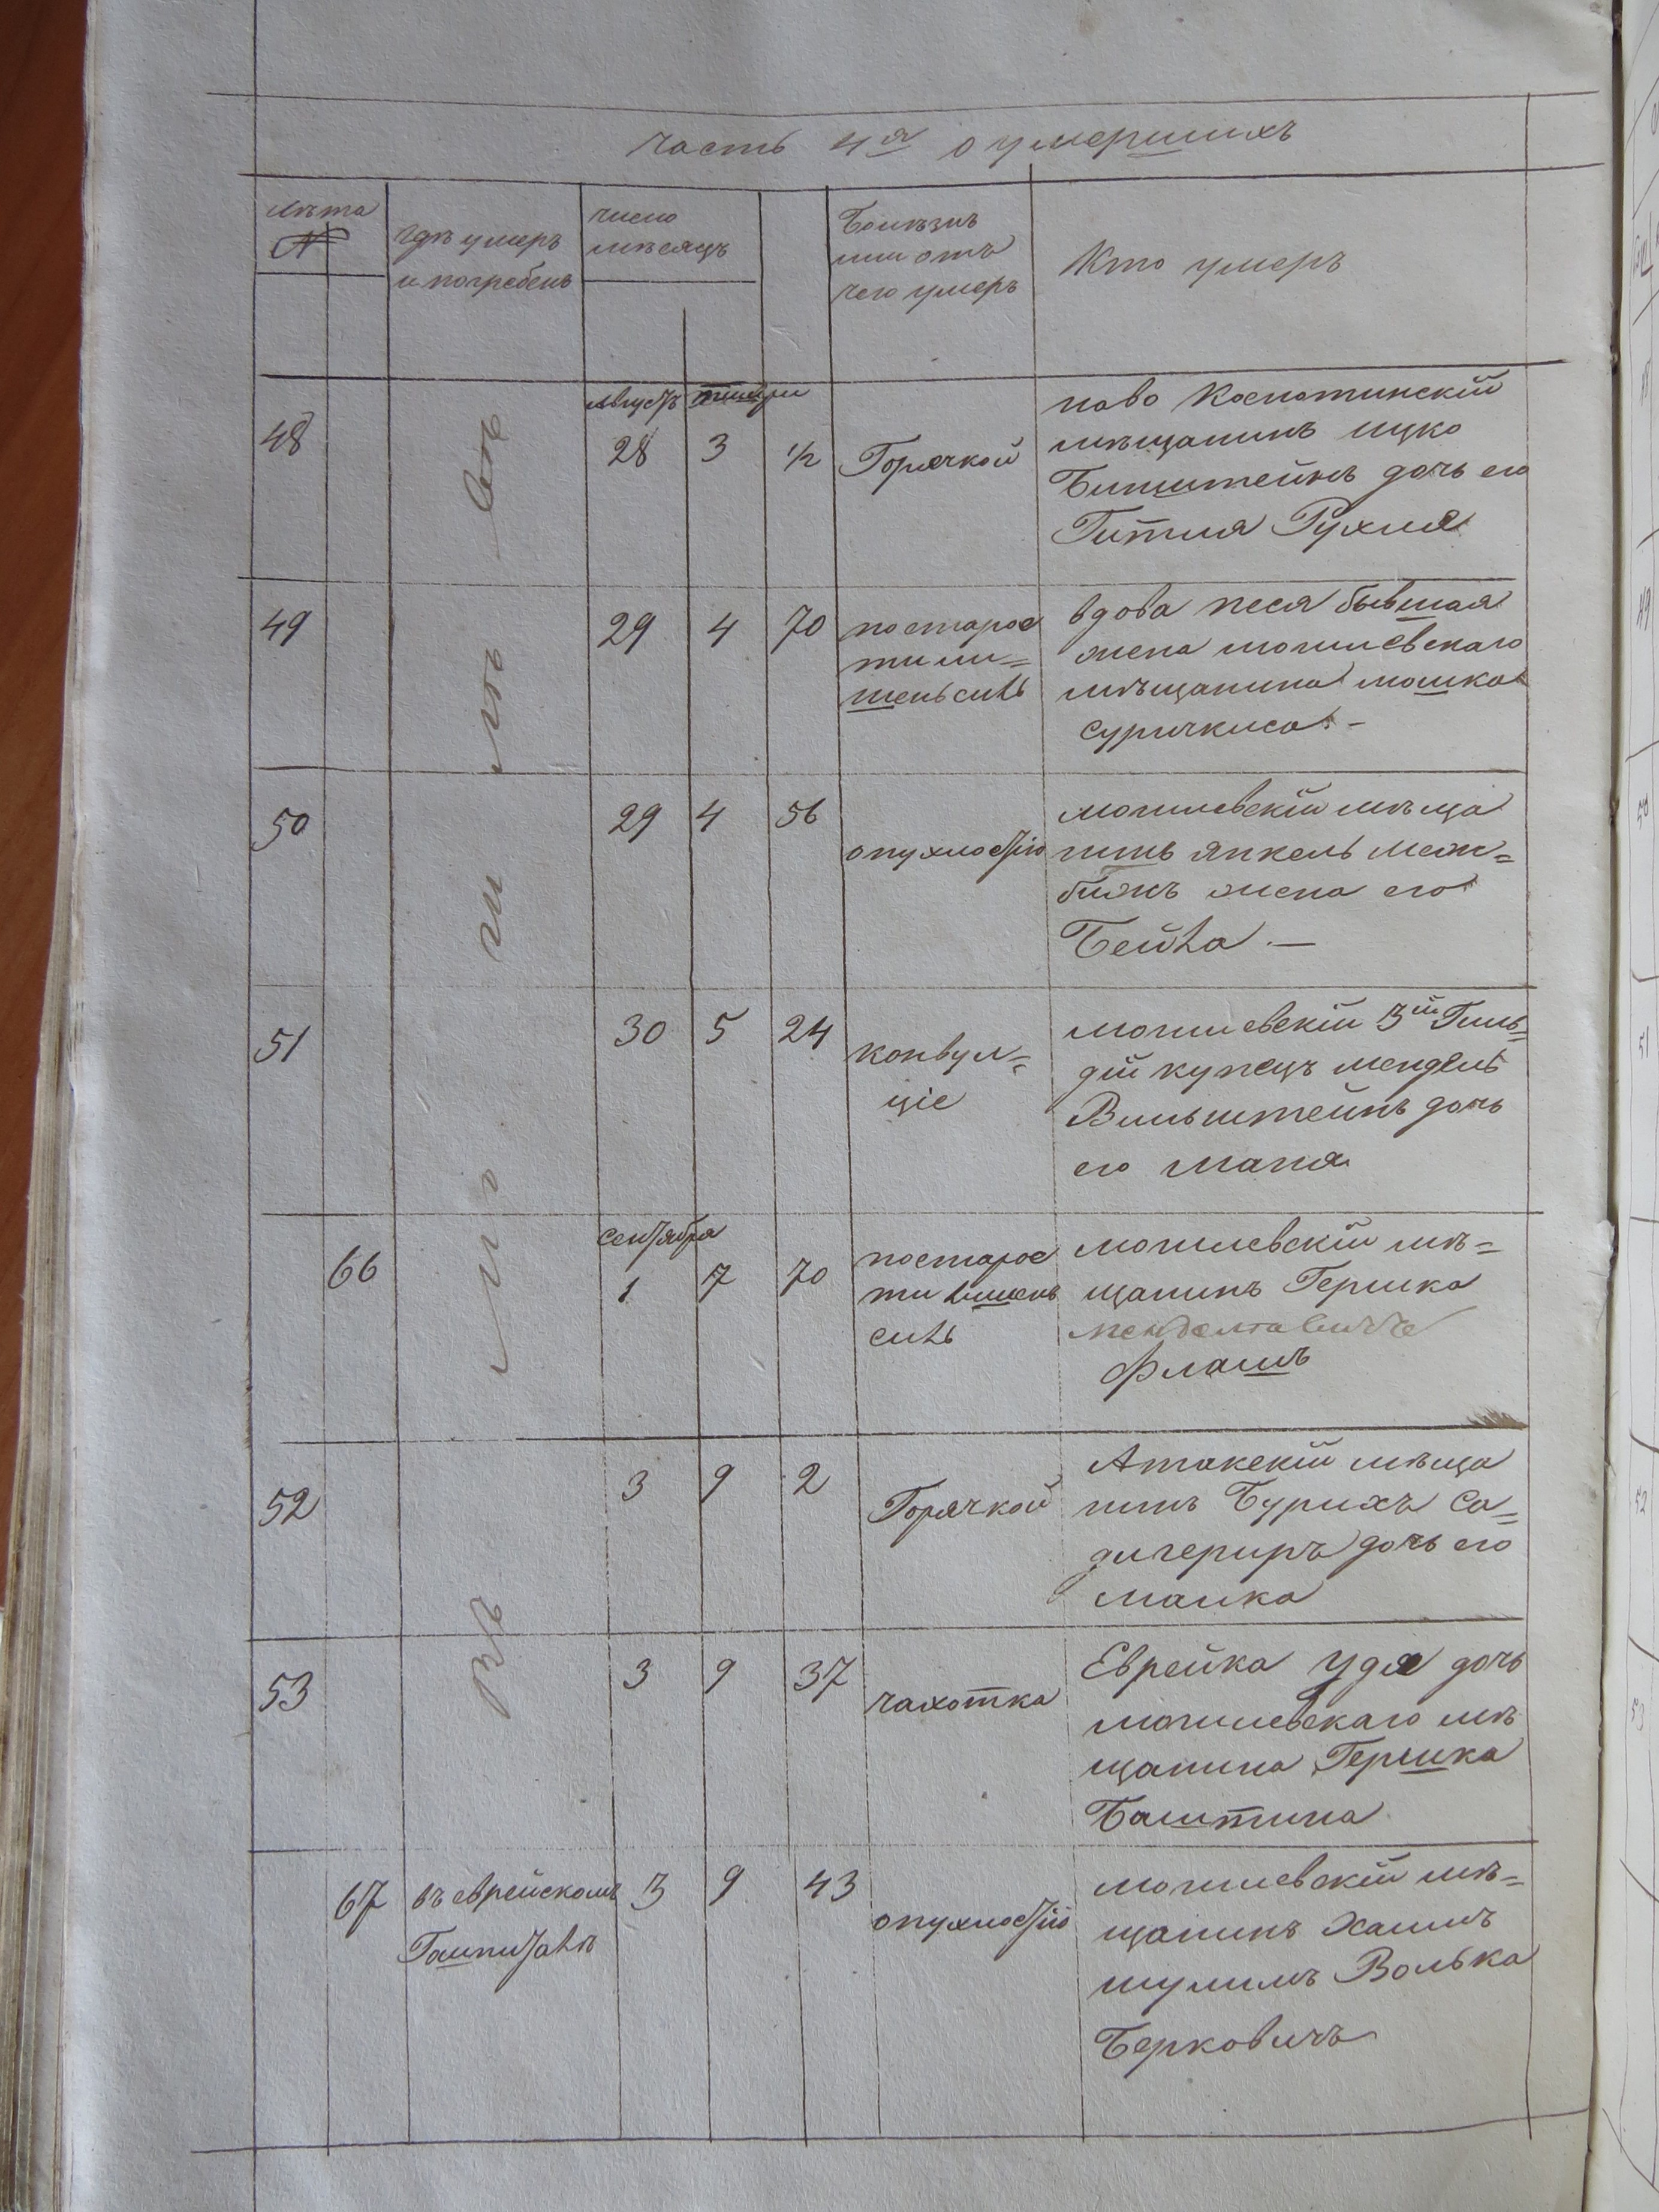 часть 4я о умершихъ
лѣта
№
гдѣ умеръ
и погребенъ
число
мѣсяцъ
Болѣзнь
или отъ
чего умеръ
Кто умеръ
въ Могилевѣ
августъ тишри
48 28 3 1/2 Горячкой
ново
мѣщанинъ ицко
дочь его
Гитля Рухля
49 29 4 70 по старос
ти ли=
шень силъ
вдова песя бывшая
жена могилевскаго
мѣщанина мошка
суричкиса. -
50 29 4 56 опухлостію
могилевскій мѣща
нинъ янкель меж=
бижъ жена его
Бейла. —
51 30 5 24 конвул=
ціе
могилевскій 3й Гиль=
дій купецъ мендель
Вильштейнъ дочь
его маня
сентября
66 1 7 70 по старос
ти лишень
силъ
могилевскій мѣ=
щанинъ Гершка
Флашъ
52 3 9 2 Горячкой
Атакскій мѣща
нинъ Бурихъ Са=
дочь его
малка
53 3 9 37 чахотка
Еврейка удя дочь
могилевскаго мѣ
щанина Гершка
Баштина
67 въ еврейскомъ
Гашпиталѣ
3 9 43 опухлостію
могилевскій мѣ=
щанинъ Хаимъ
шулимъ Волька
Берковичъ